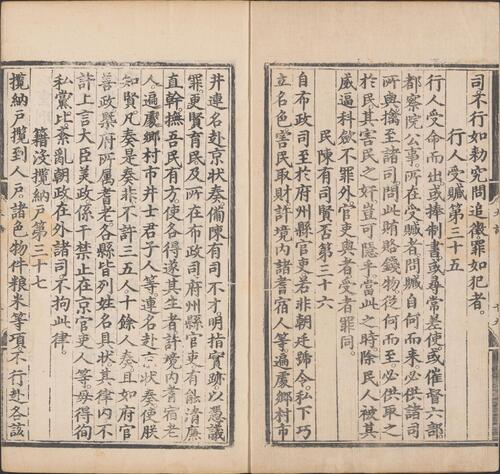 司不行如勑究問追徵罪如犯者。
行人受贓第三十五
行人受命而出或捧制書或尋常差使或催督六部
都察院公事。所在受贓者問贓自何而來必供諸司
所與擒至諸司問此賄賂錢物從何而至必供取之
於民其害民之奸豈可隱乎當此之時除民人被其
威逼科歛不罪外官吏與者受者罪同。
民陳有司賢否第三十六
自布政司至於府州縣官吏若非朝廷號令。私下巧
立名色害民取財許境内諸耆宿人等遍處鄉村市
井連名赴京狀奏備陳有司不才。明指實跡以憑議
罪更賢育民及所在布政司府州縣官吏有能清廉
直幹撫吾民有方。使各得遂其生者許境内耆宿老
人。遍處鄉村市井士君子人等。連名赴京狀奏使朕
知賢凡奏是奏非不許三五人十餘人奏且如府官
善政舉府所屬耆老各縣皆列姓名具狀其律内不
許上言大臣美政係干禁止在京官吏人等。毋得徇
私黨比紊亂朝政在外諸司不拘此律。
籍沒攬納戶第三十七
攬納戶攬到人戶諸色物件粮米等項不行赴各該